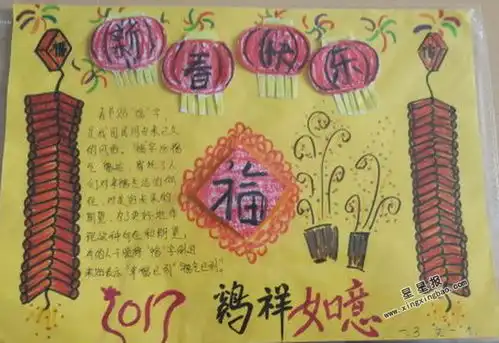 新春快乐
福
春节贴"福"字,
是我国民间由来已久
的风俗。"福"字指福
气、福运,寄托了人
们对幸福生活的向
往,对美好未来的
期望。为更好地体
现这种向往和期望,
有的人干脆将"福"字倒过
来贴表示"幸福已到""福气已到"。
2017
鷄祥如意
星星报
www.xingxingbao.com